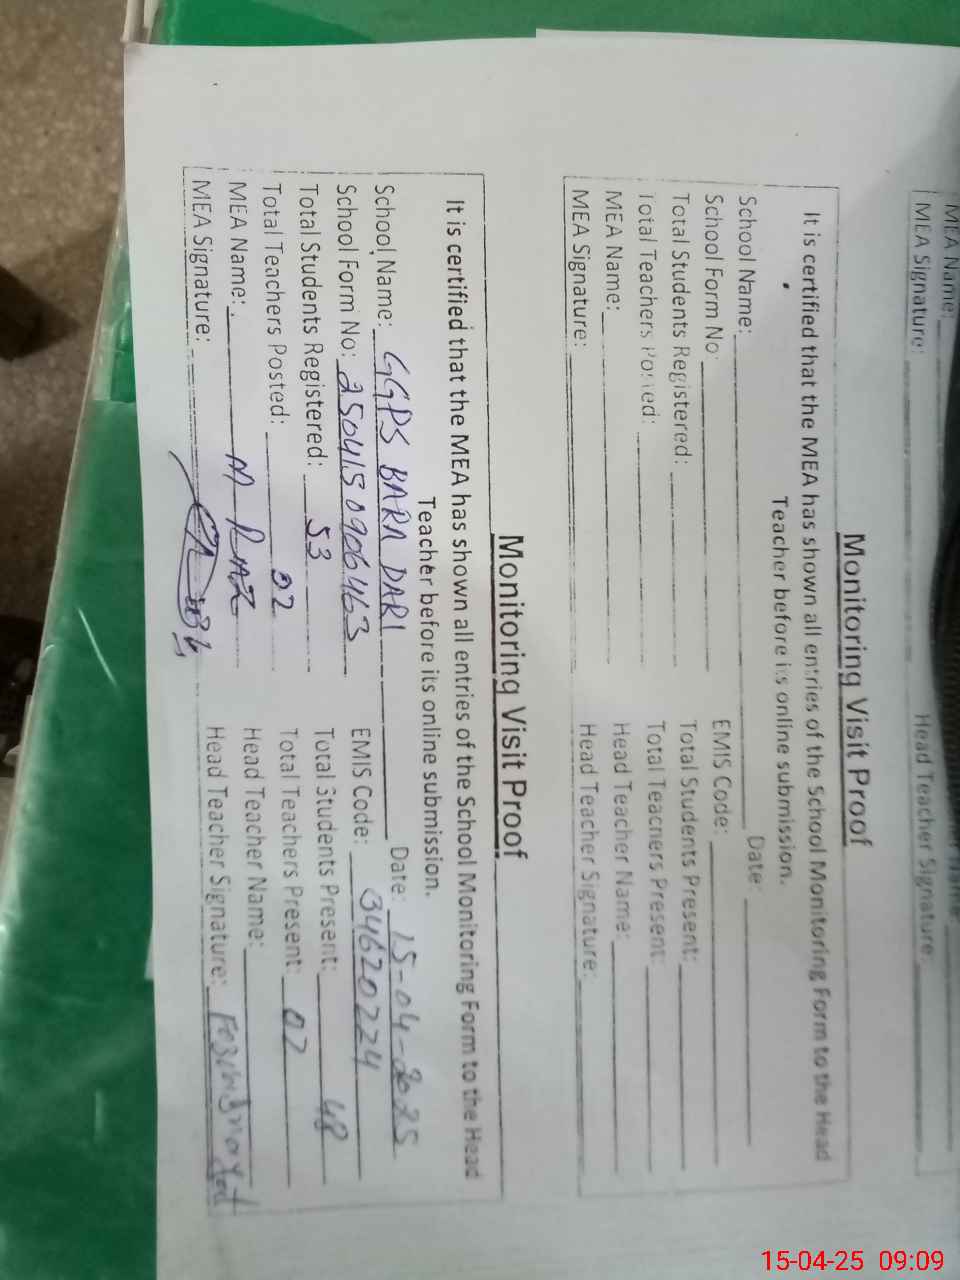 MEA Name:
MEA Signature: Head Teacher Signature:
Monitoring Visit Proof
It is certified that the MEA has shown all entries of the School Monitoring Form to the Head
Teacher before its online submission.
School Name: Date:
School Form No: EMIS Code:
Total Students Registered: Total Students Present:
Total Teachers Posted: Total Teachers Present:
MEA Name: Head Teacher Name:
MEA Signature: Head Teacher Signature:
Monitoring Visit Proof
It is certified that the MEA has shown all entries of the School Monitoring Form to the Head
Teacher before its online submission.
School Name: GGPS BARA DARI Date: 15-04-2025
School Form No: 2504150906463 EMIS Code: 34620224
Total Students Registered: 53 Total Students Present: 48
Total Teachers Posted: 02 Total Teachers Present: 02
MEA Name: Head Teacher Name:
MEA Signature: Head Teacher Signature:
15-04-25 09:09